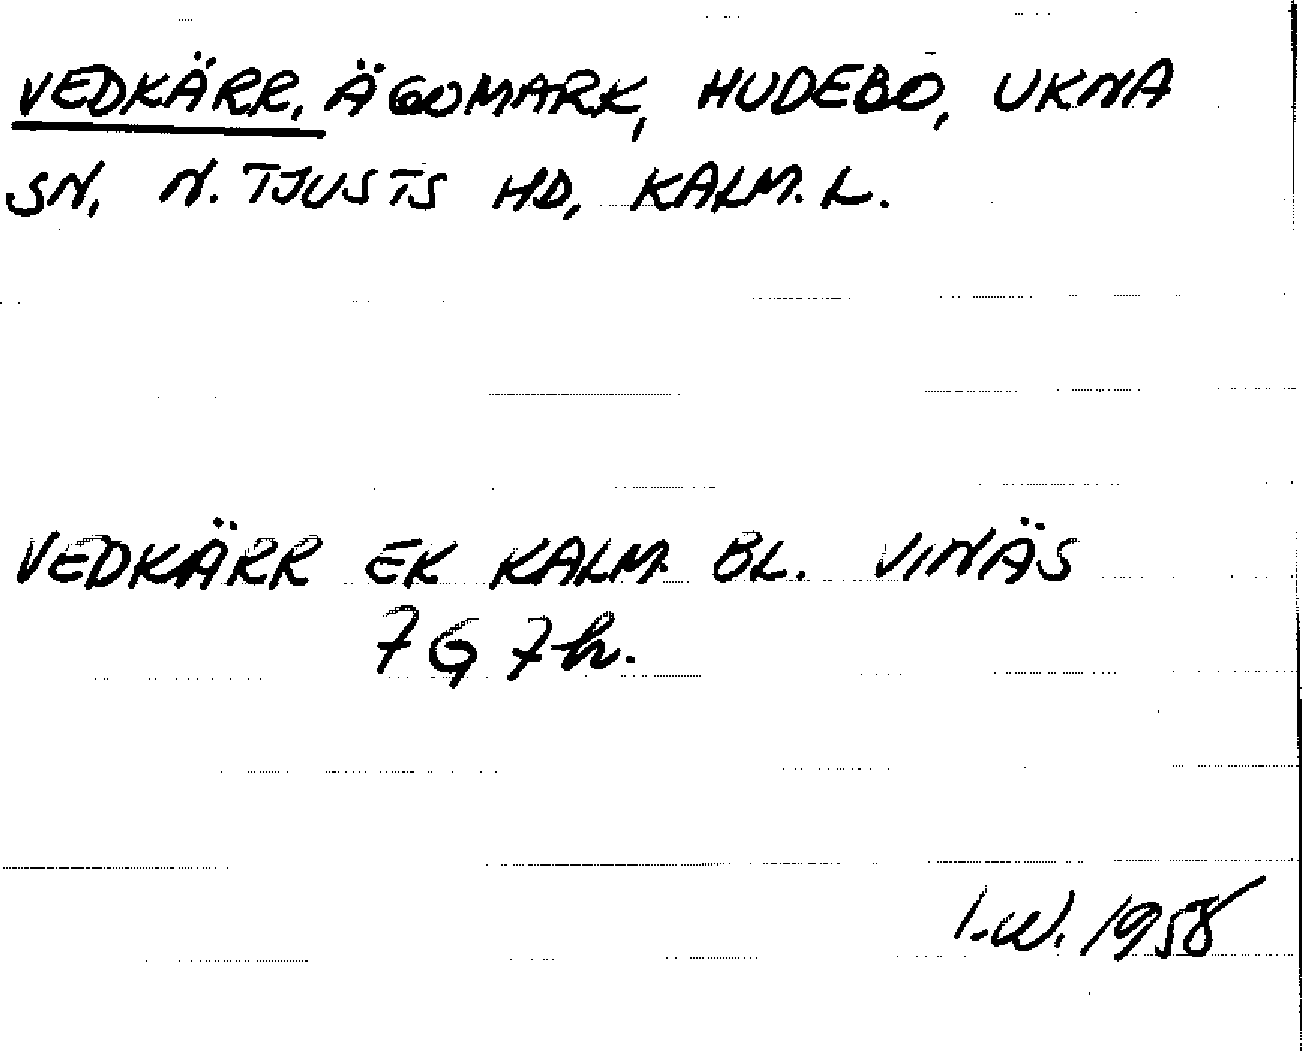 VEDKÄRR, ÄGOMARK, HUDEBO, UKNA
SN, N. TJUSTS HD, KALM. L.
VEDKÄRR EK KALM. BL. VINÄS
7G 7h.
I.W. 1958